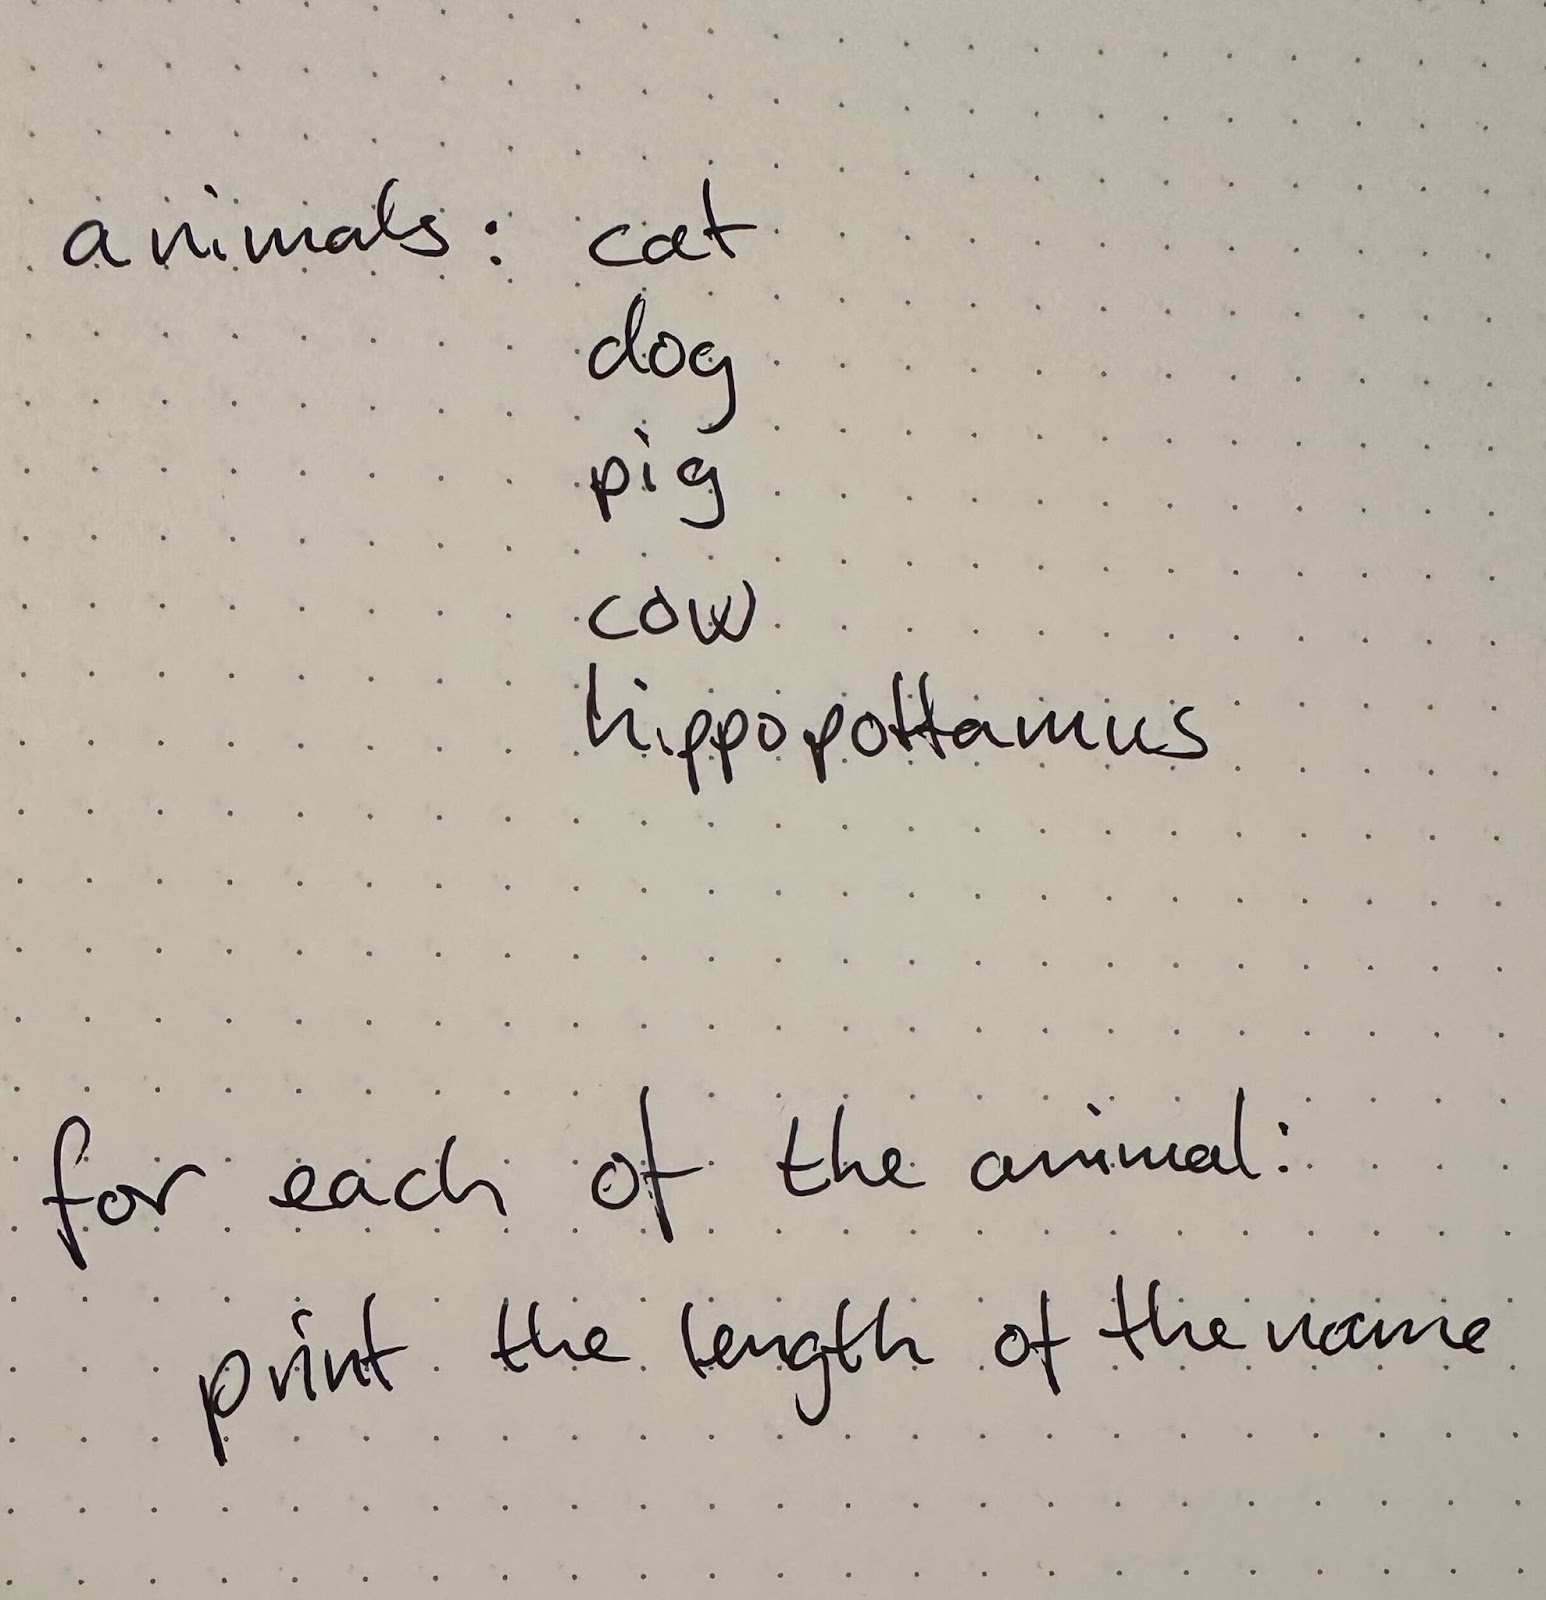 animals: cat
dog
pig
cow
hippopottamus
for each of the animal:
print the length of the name